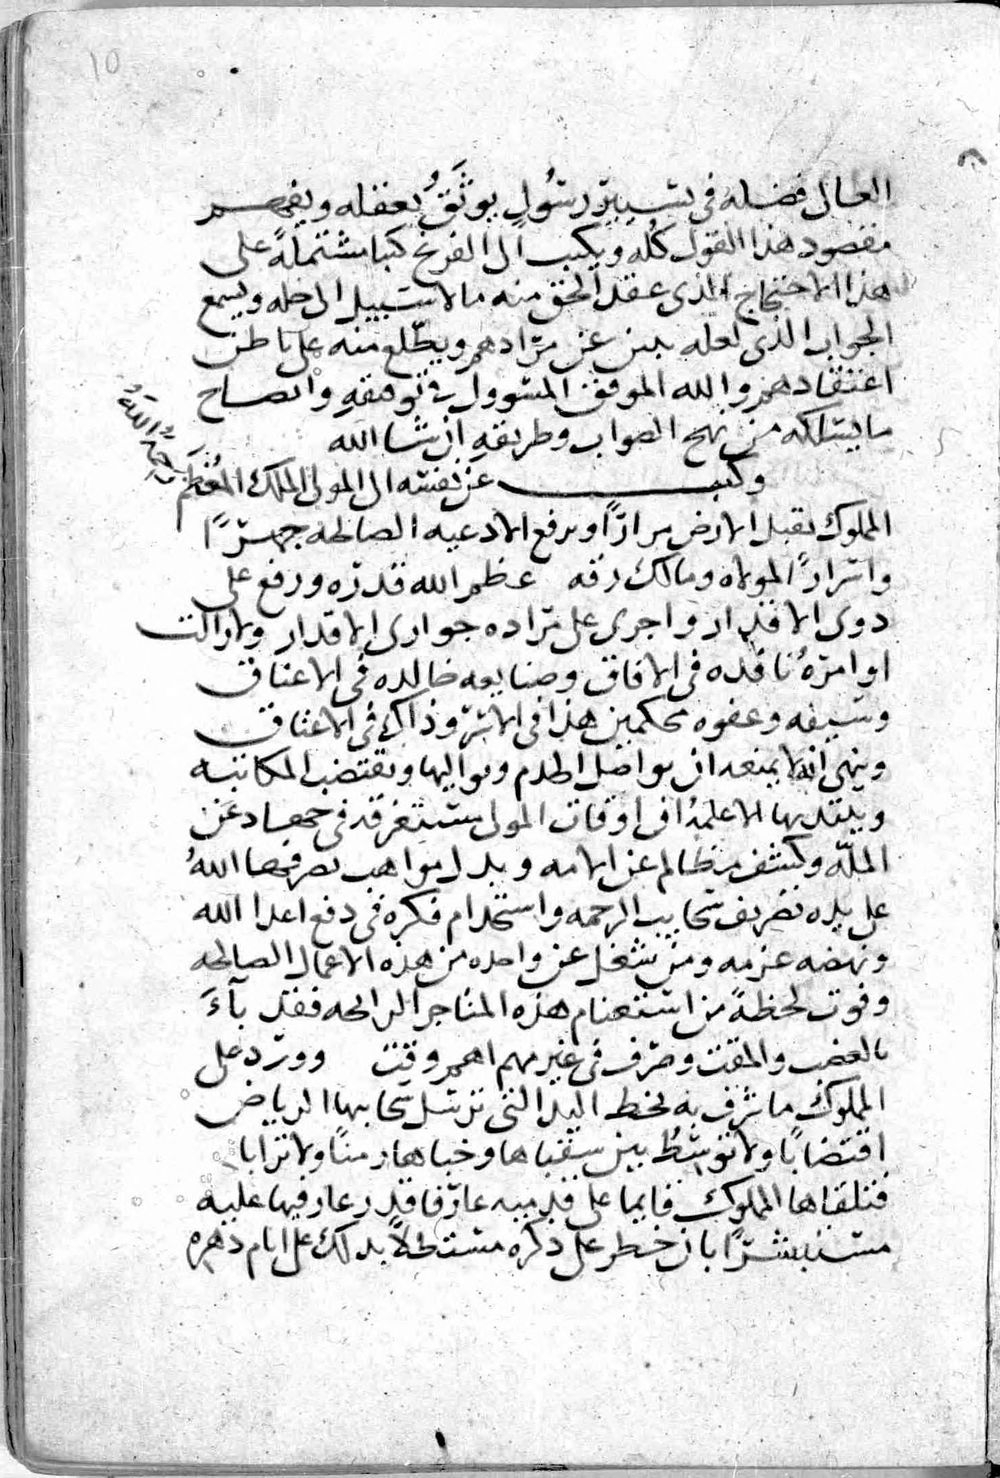 10
العالي فضله في تسيير رسول يوثق بعقله ويفهم
مقصود هذا القول كله ويكتب الى الفرنج كتبا مشتملة على
هذا الاحتجاج الذي عقد الحق منه ما لا سبيل الى حله ويسمع
الجواب الذي لعله يبين عن مرادهم ويطلع منه على باطن
اعتقادهم والله الموفق المسوول في توفيقه وايضاح
ما يسلكه من نهج الصواب وطريقه ان شا الله
وكتب عن نفسه الى المولى الملك المعظم رحمه الله
المملوك يقبل الارض مرارًا ويرفع الادعيه الصالحه جهرًا
واسرارًا لمولاه ومالك رقه عظم الله قدره ورفع على
ذوي الاقدار واجرى على مراده جواري الاقدار ولا زالت
اوامره نافذه في الافاق وصنايعه خالده في الاعناق
وسيفه وعفوه محكمين هذا في الاسر وذاك في الاعتاق
وينهي انه لا يمنعه ان يواصل الخدم ويواليها ويقتضب المكاتبه
الا علمه ان اوقات المولى مستغرقه في جهاد عن
المله وكشف مظالم عن الامه وبذل مواهب يصرفها الله
على يده تصريف سحايب الرحمه واستخدام فكره في دفع اعدا الله
ونهضه عزمه ومن شغل عن واحده من هذه الاعمال الصالحه
وفوت لحظةً من استغنام هذه المتاجر الرابحه فقد بآء
بالغضب والمقت وصرف في غير مهم اهم وقت وورد على
المملوك ما شرف به بخط اليد التي ترسل سحابها الرياض
اقتضابًا ولا توسط بين سقياها وخباها زمنًا ولا ترابا
فتلقاها المملوك قايما على قدميه عارفا قدر عارفيها عليه
مستبشرًا بان خطر على ذكره مستطلاً بذلك على ايام دهره